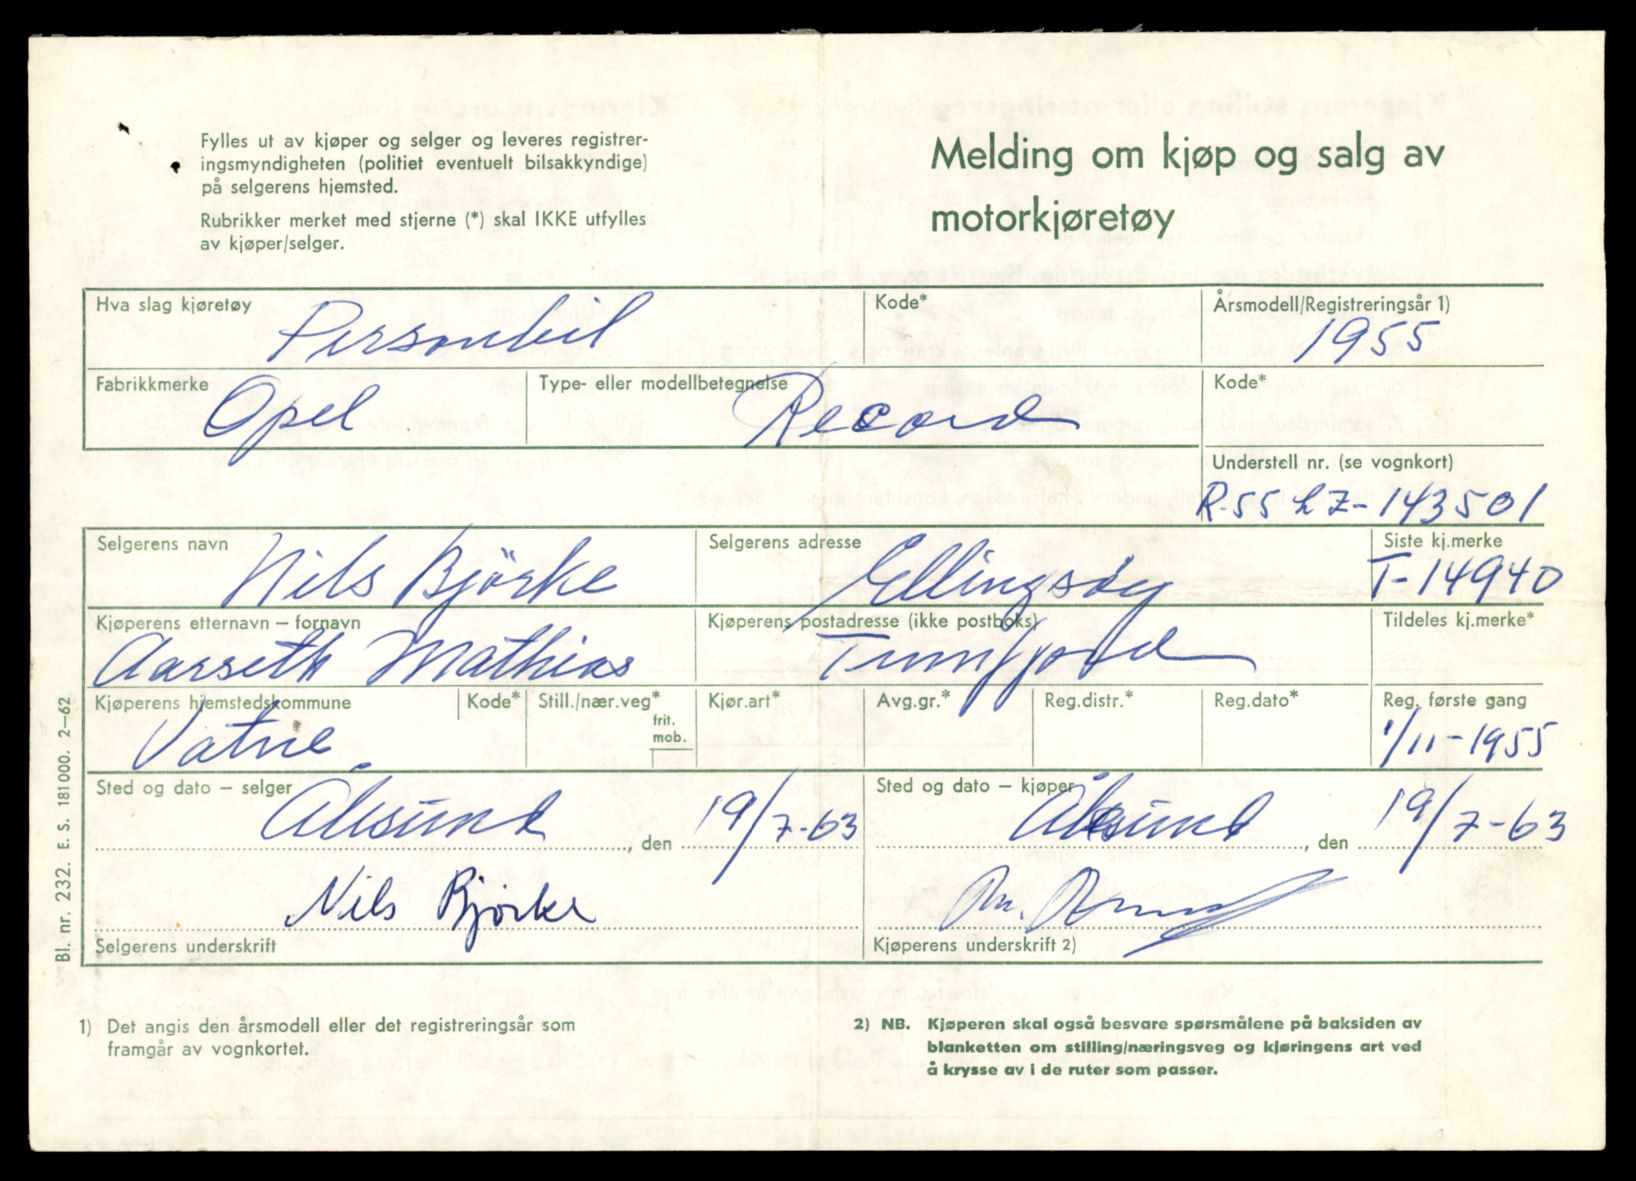 Fylles ut av kjøper og selger og leveres registrer-
ingsmyndigheten (politiet eventuelt bilsakkyndige)
på selgerens hjemsted.
Rubrikker merket med stjerne (*) skal IKKE utfylles
av kjøper/selger.
Melding om kjøp og salg av
motorkjøretøy
Hva slag kjøretøy
Personbil
Kode*
Årsmodell/Registreringsår 1)
1955
Fabrikkmerke
Opel
Type- eller modellbetegnelse
Record
Kode*
Understell nr. (se vognkort)
R-55 LZ-143501
Selgerens navn
Nils Bjørke
Selgerens adresse
Ellingsøy
Siste kj.merke
T-14940
Kjøperens etternavn – fornavn
Aarseth Mathias
Kjøperens postadresse (ikke postboks)
Tennfjord
Tildeles kj.merke*
Kjøperens hjemstedskommune
Vatne
Kode*
Still./nær.veg*
frit.
mob.
Kjør.art*
Avg.gr.*
Reg.distr.*
Reg.dato*
Reg. første gang
1/11-1955
Sted og dato – selger
Ålesund, den 19/7-63
Sted og dato – kjøper
Ålesund, den 19/7-63
Nils Bjørke
Selgerens underskrift
Kjøperens underskrift 2)
Bl. nr. 232. E. S. 181 000. 2–62
1) Det angis den årsmodell eller det registreringsår som
framgår av vognkortet.
2) NB. Kjøperen skal også besvare spørsmålene på baksiden av
blanketten om stilling/næringsveg og kjøringens art ved
å krysse av i de ruter som passer.